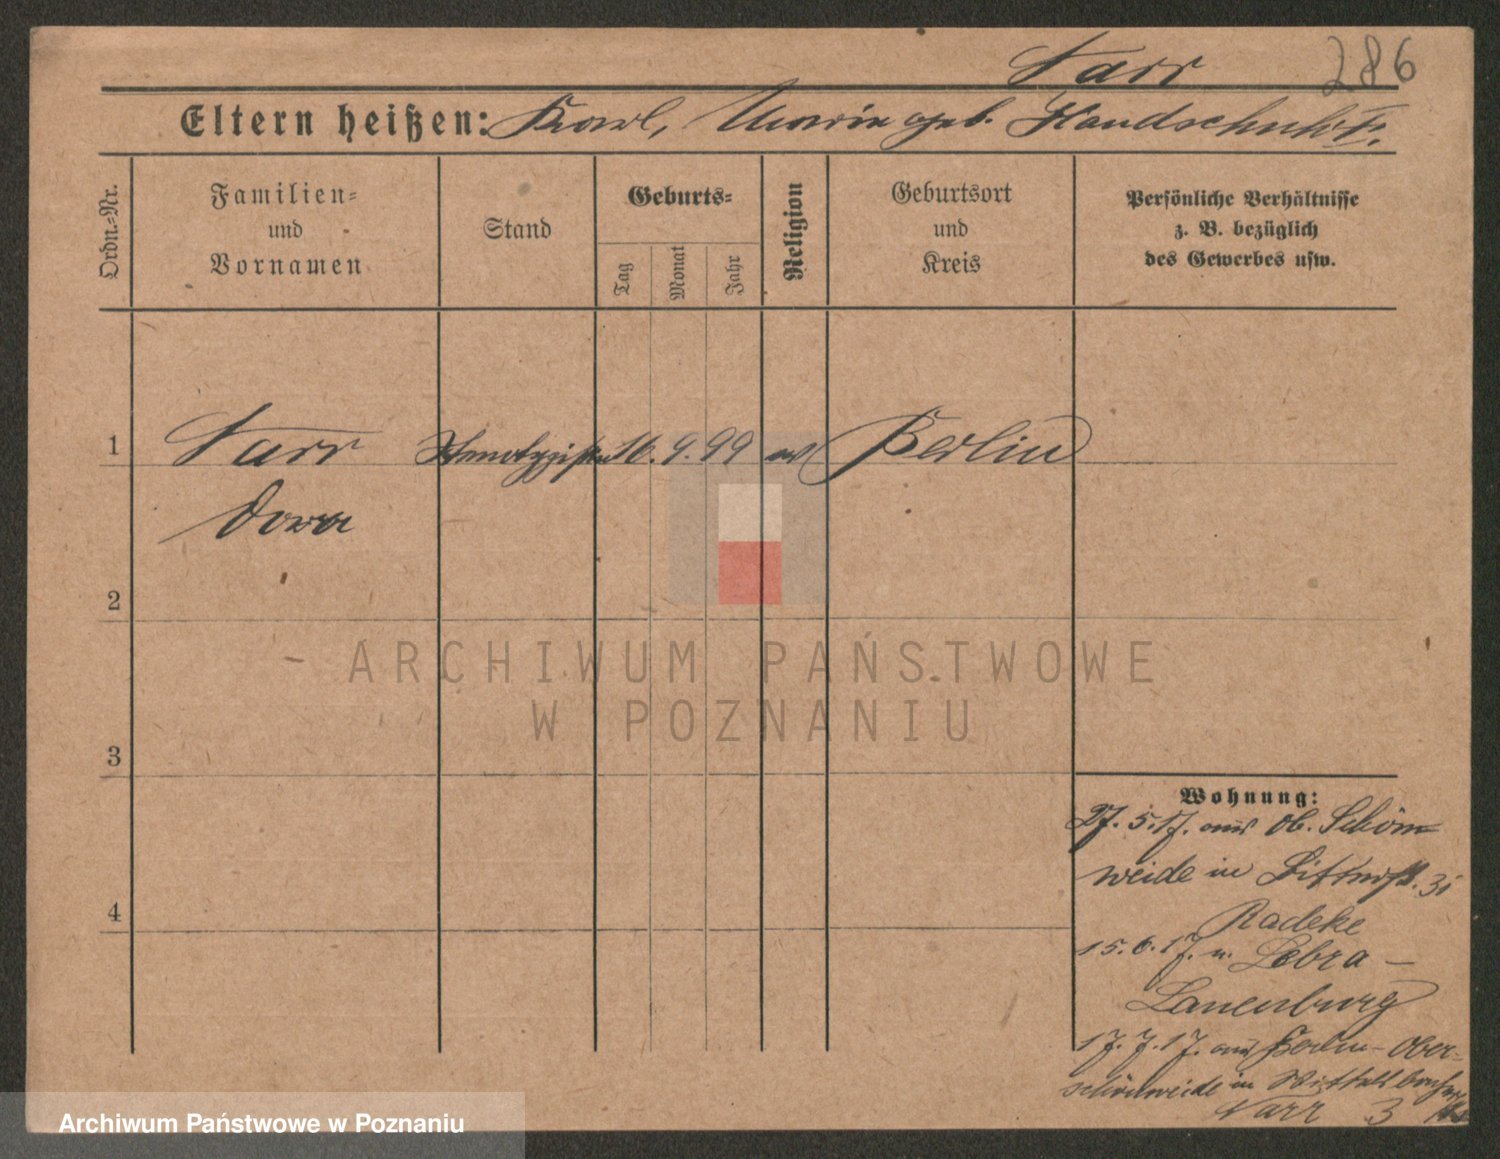 Narr 286
Eltern heißen: Karl, Maria geb. Handschuh
Ordn.-Nr.
Familien-
und
Vornamen
Stand
Geburts-
Tag
Monat
Jahr
Religion
Geburtsort
und
Kreis
Persönliche Verhältnisse
z. B. bezüglich
des Gewerbes usw.
1 Narr Stenotypistin 16. 9. 99 ev Berlin
Dora
2
3
4
ARCHIWUM PAŃSTWOWE
W POZNANIU
Wohnung:
27.5.17. aus Ob. Schön
weide in 31
Radeke
15.6.17. n. Lebra -
Lauenburg
17.7.17. aus Berlin - Ober-
schöneweide in
Narr 3
Archiwum Państwowe w Poznaniu